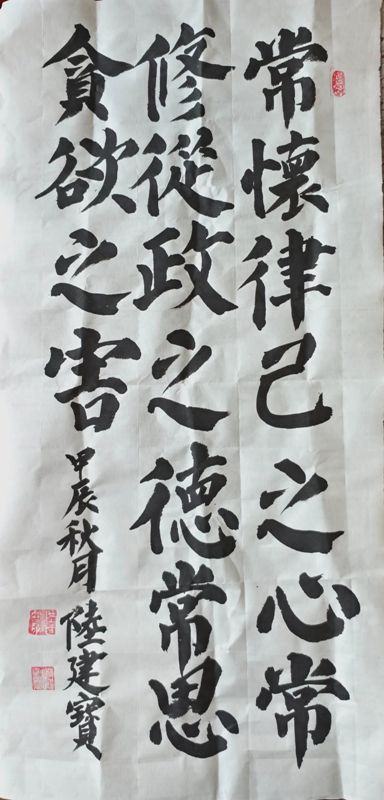 常懷律己之心常
修從政之德常思
貪欲之害
甲辰秋月
陸建寶